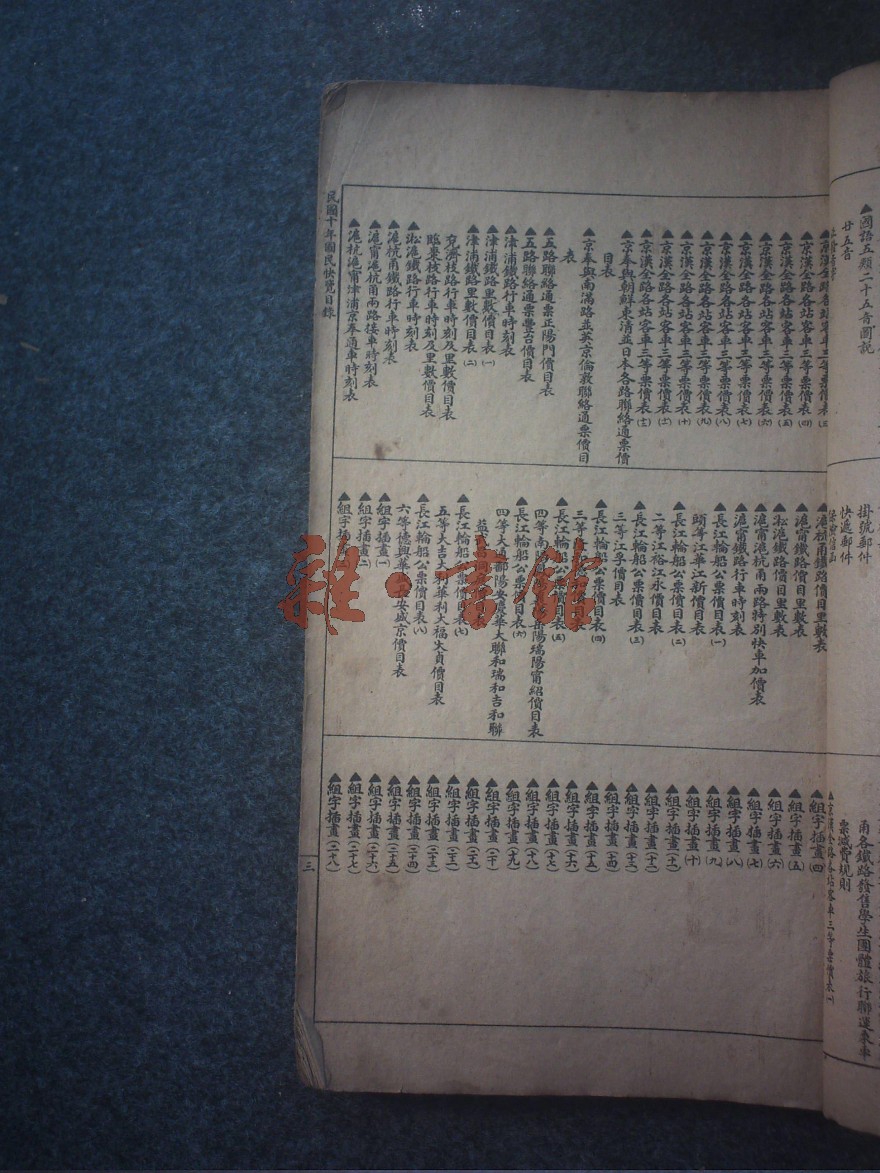 ▲國語五類二十五音圖說
廿五音
掛號郵件
快遞郵件
甯各鐵路發售學生團體旅行聯運乘車
票減費規則
▲京漢全路各站客車三等票價表(一)
▲京漢全路各站客車三等票價表(三)
▲京漢全路各站客車三等票價表(四)
▲京漢全路各站客車三等票價表(五)
▲京漢全路各站客車三等票價表(六)
▲京漢全路各站客車三等票價表(七)
▲京漢全路各站客車三等票價表(八)
▲京漢全路各站客車三等票價表(九)
▲京漢全路各站客車三等票價表(十)
▲京漢全路各站客車三等票價表(十一)
▲京漢全路各站客車三等票價表(十二)
▲京奉與朝鮮東清並日本各路聯絡通票價
目表
▲京奉與南滿路並英京倫敦聯絡通票價目
表
▲五路聯絡通票正陽門價目表
▲五路聯絡通票豐台價目表
▲津浦鐵路行車時刻表
▲津浦鐵路里數價目表(一)
▲津浦鐵路里數價目表(二)
兗濟枝路行車時刻及里數價目表
臨棗枝路行車時刻及里數價目表
▲淞滬鐵路行車時刻表
▲滬杭甬鐵路行車時刻表
▲滬甯滬杭甬兩路接車時刻表
▲滬杭滬甯津浦京奉通車時刻表
▲滬杭甬鐵路價目里數表
▲滬甯鐵路價目里數表
▲淞滬鐵路價目里數表
▲滬甯滬杭甬兩路特別快車加價表
▲滬甯鐵路行車時刻表
▲長江輪船公票價目表(一)
頭等江華江新價目表
▲長江輪船公票價目表(二)
二等江裕江永價目表
▲長江輪船公票價目表(三)
三等江孚價目表
▲長江輪船公票價目表(四)
三等
▲長江輪船公票價目表(五)
四等南陽岳陽瑞陽甯紹價目表
▲長江輪船公票價目表(六)
四等大通鄱陽安慶華大聯和瑞和吉和聯
益
▲長江輪船公票價目表(七)
五等大吉大利華利大福大貞價目表
▲長江輪船公票價目表(八)
六等德興華安安盛京價目表
▲組字插畫(一)
▲組字插畫(二)
▲組字插畫(三)
▲組字插畫(四)
▲組字插畫(五)
▲組字插畫(六)
▲組字插畫(七)
▲組字插畫(八)
▲組字插畫(九)
▲組字插畫(十)
▲組字插畫(十一)
▲組字插畫(十二)
▲組字插畫(十三)
▲組字插畫(十四)
▲組字插畫(十五)
▲組字插畫(十六)
▲組字插畫(十七)
▲組字插畫(十八)
▲組字插畫(十九)
▲組字插畫(二十)
▲組字插畫(二十一)
▲組字插畫(二十二)
▲組字插畫(二十三)
▲組字插畫(二十四)
▲組字插畫(二十五)
▲組字插畫(二十六)
▲組字插畫(二十七)
▲組字插畫(二十八)
民國十年國民快覽目錄
三
雜·書館